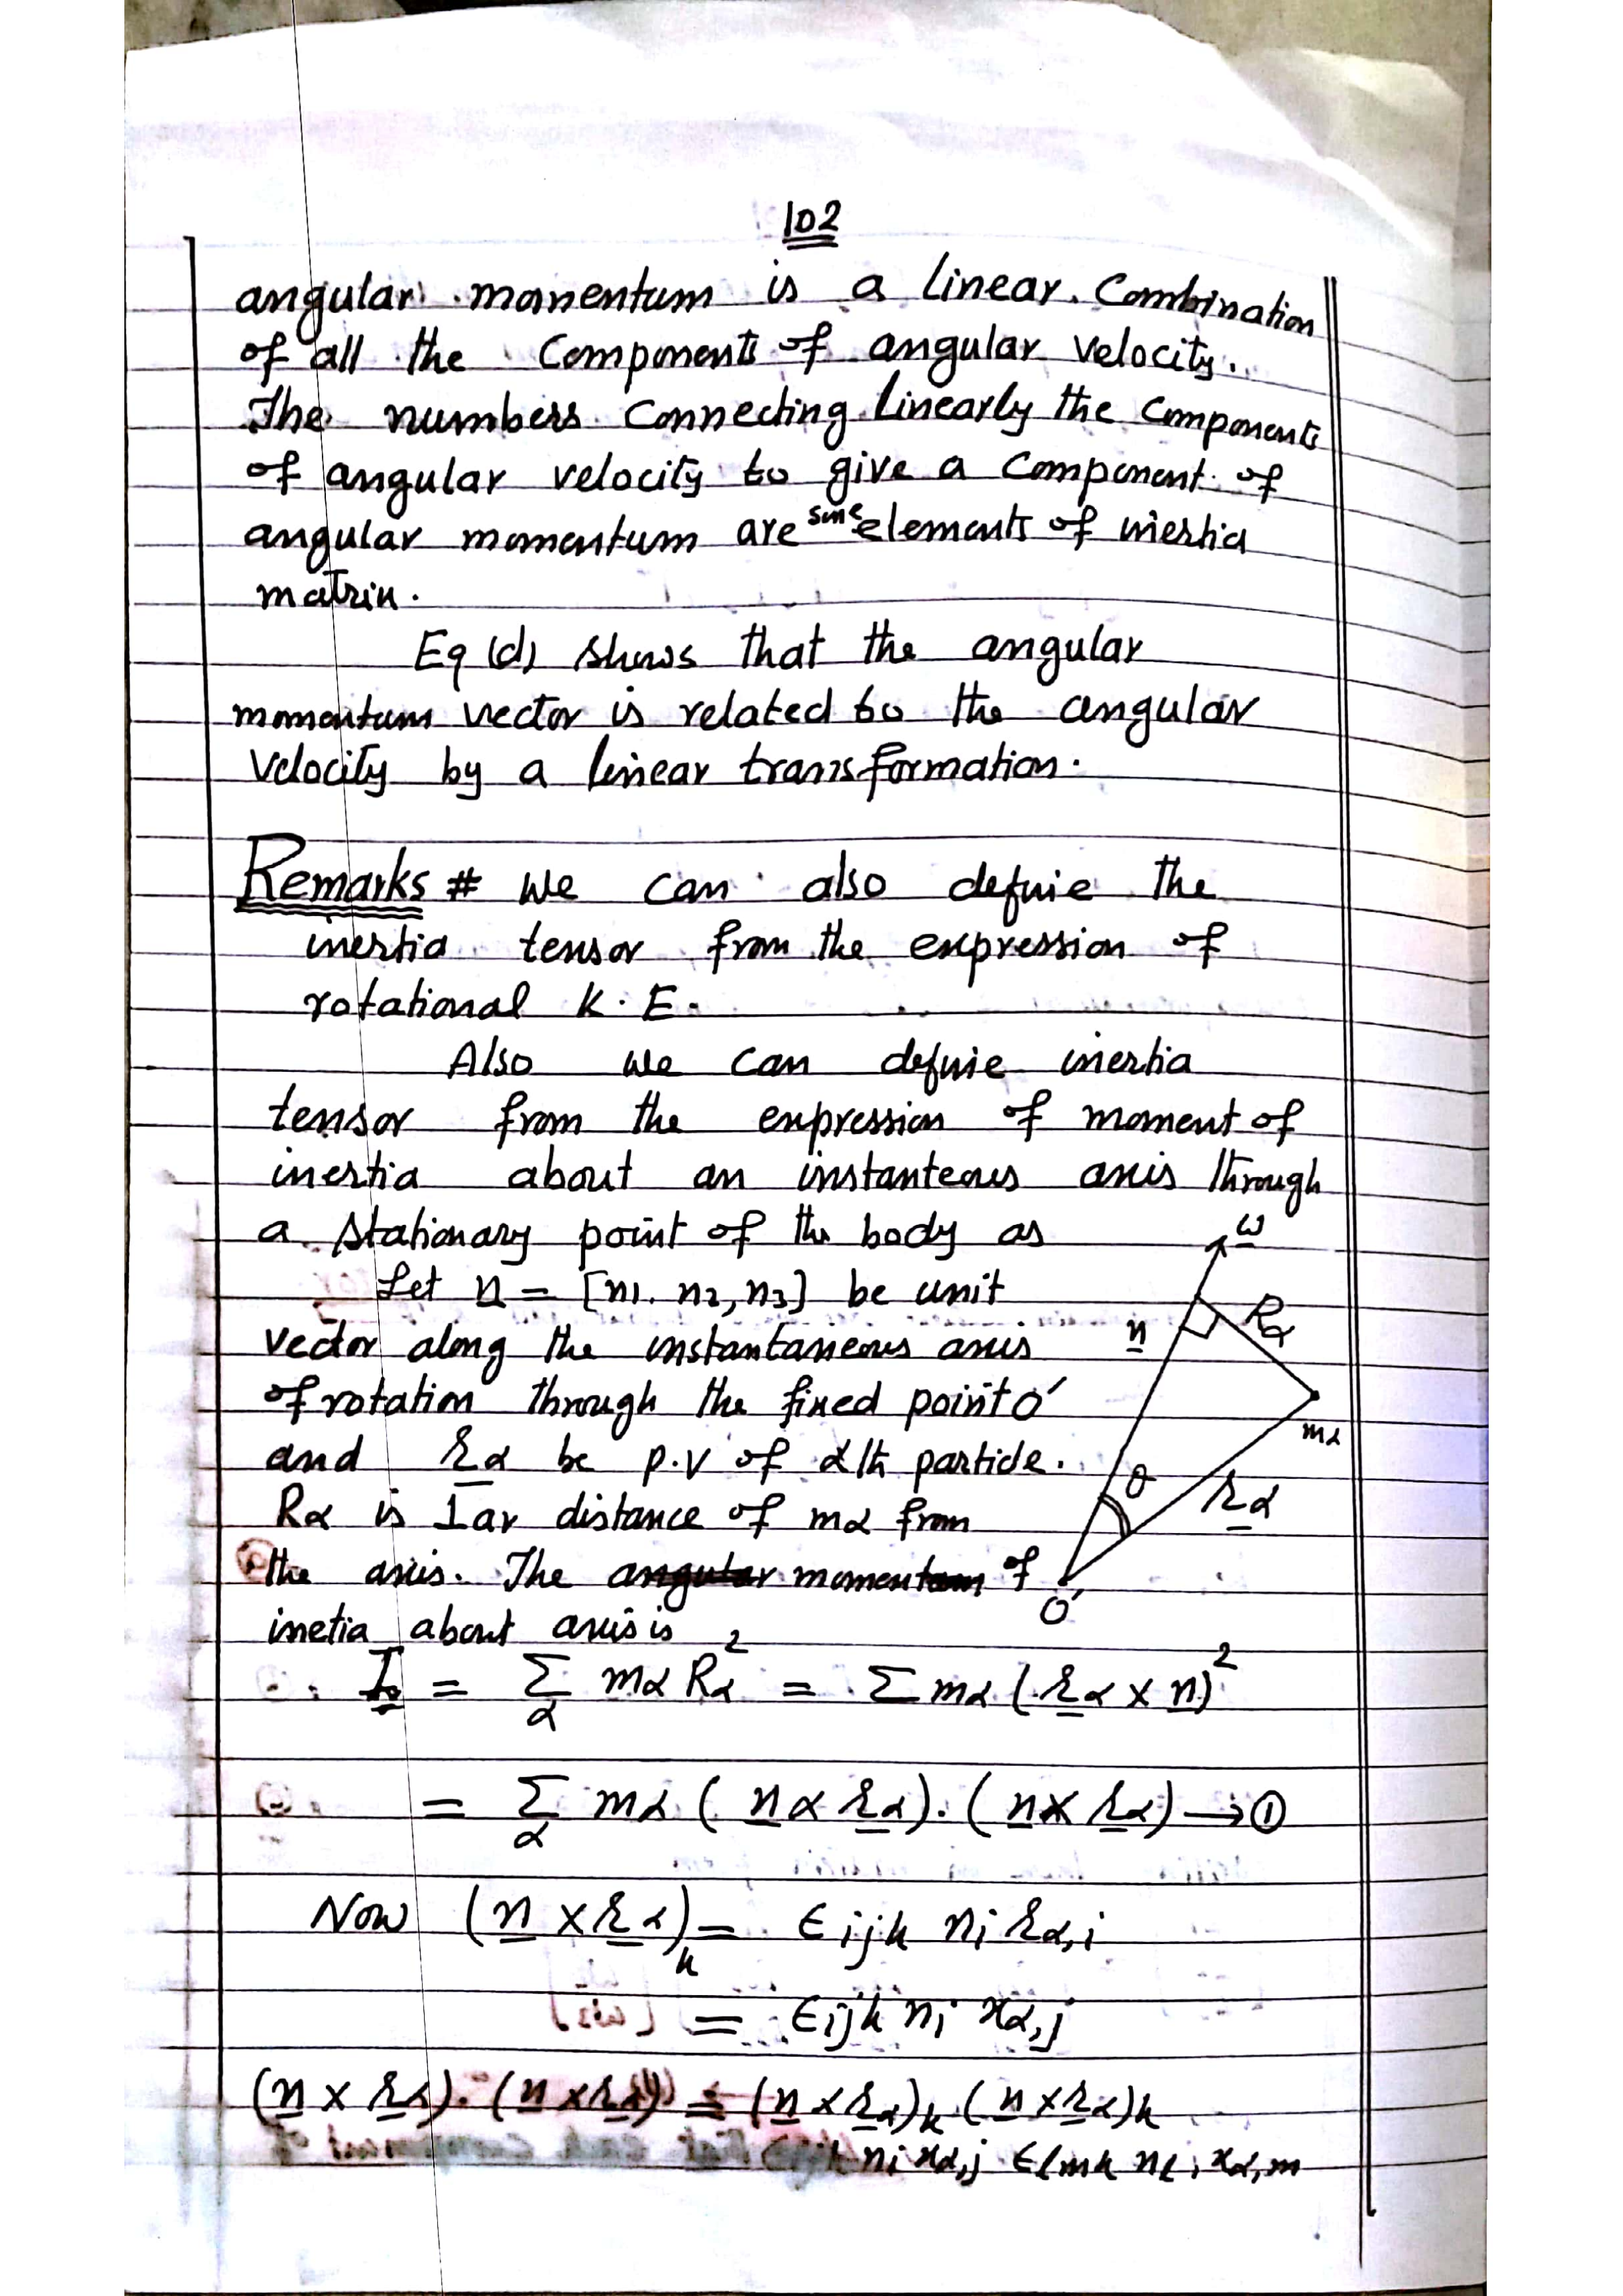 102
angular momentum is a linear. Combination
of all the Components of angular velocity.
The numbers Connecting linearly the Components
of angular velocity to give a Component of
angular momentum are some elements of inertia
matrix.
Eq (d) shows that the angular
momentum vector is related to the angular
velocity by a linear transformation.
Remarks # We can also define the
inertia tensor from the expression of
rotational K.E.
Also we can define inertia
tensor from the expression of moment of
inertia about an instanteous axis through
a stationary point of the body as
ω
Let n = [n1. n2, n3] be unit
vector along the instantaneous axis
n Rα
of rotation through the fixed point O'
mα
and rα be p.v of αth particle.
θ rα
Rα is ⊥ar distance of mα from
the axis. The angular momentum of
O'
inetia about axis is
I = Σα mα Rα² = Σ mα (rα × n)²
= Σα mα (n α rα).(n × rα) → ①
Now (n × rα)k = ϵijk ni rα,i
= ϵijk ni xα,j
(n × rα).(n × rα) = (n × rα)k (n × rα)k
k ni xα,j ϵlmk nl, xα,m